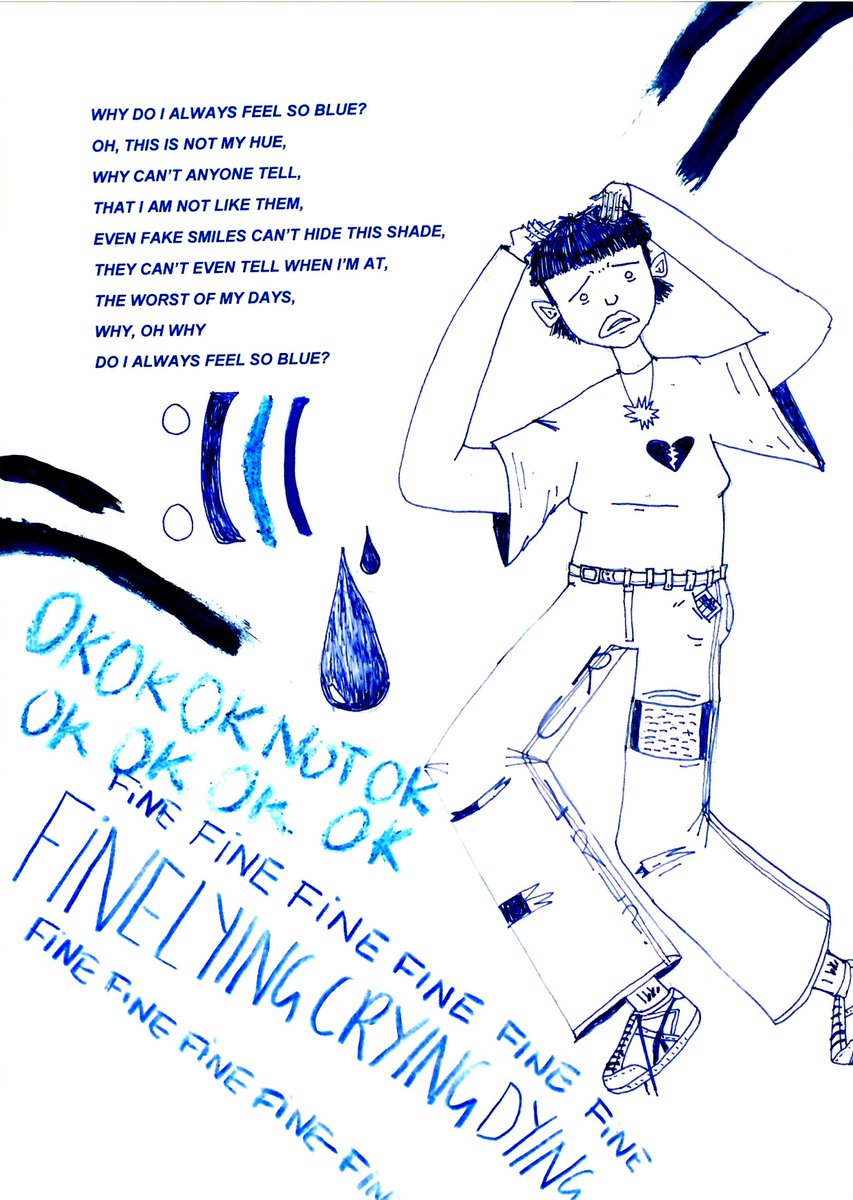 WHY DO I ALWAYS FEEL SO BLUE?
OH, THIS IS NOT MY HUE,
WHY CAN'T ANYONE TELL,
THAT I AM NOT LIKE THEM,
EVEN FAKE SMILES CAN'T HIDE THIS SHADE,
THEY CAN'T EVEN TELL WHEN I'M AT,
THE WORST OF MY DAYS,
WHY, OH WHY
DO I ALWAYS FEEL SO BLUE?
OKOK OK NOT OK
OK OK OK. OK
FiNE FiNE FiNE FiNE FiNE FiNE
FiNELYING CRYING DYING
FiNE FiNE FiNE FiNE FiNE FiN